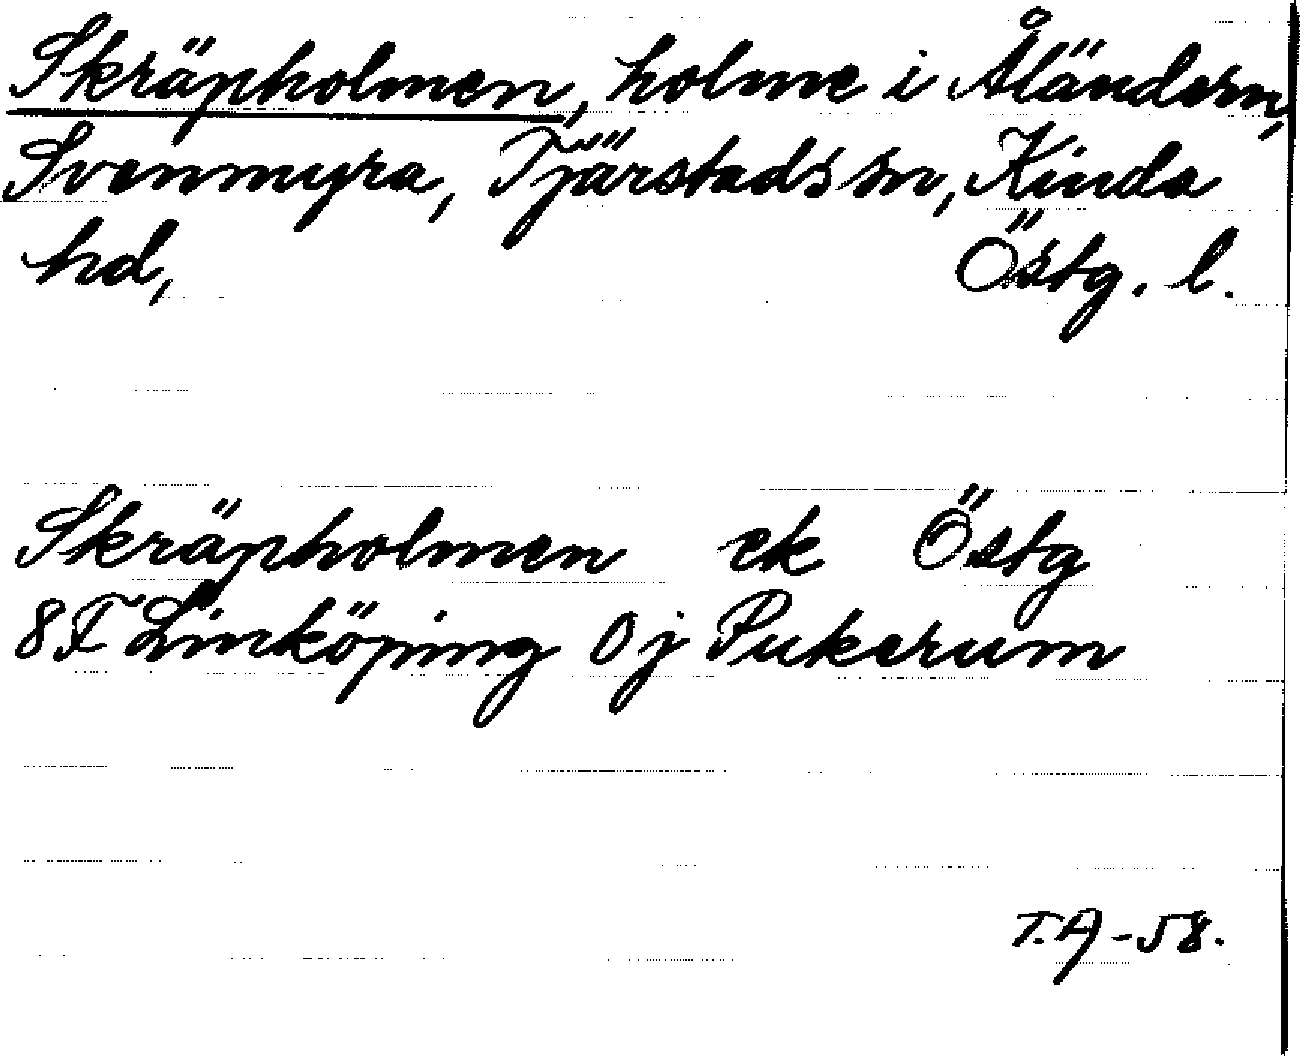 Skräpholmen, holme i Åländern,
Svenmyra, Tjärstads sn, Kinda
hd, Östg. l.
Skräpholmen ek Östg
8F Linköping 0j Pukerum
T.A-58.